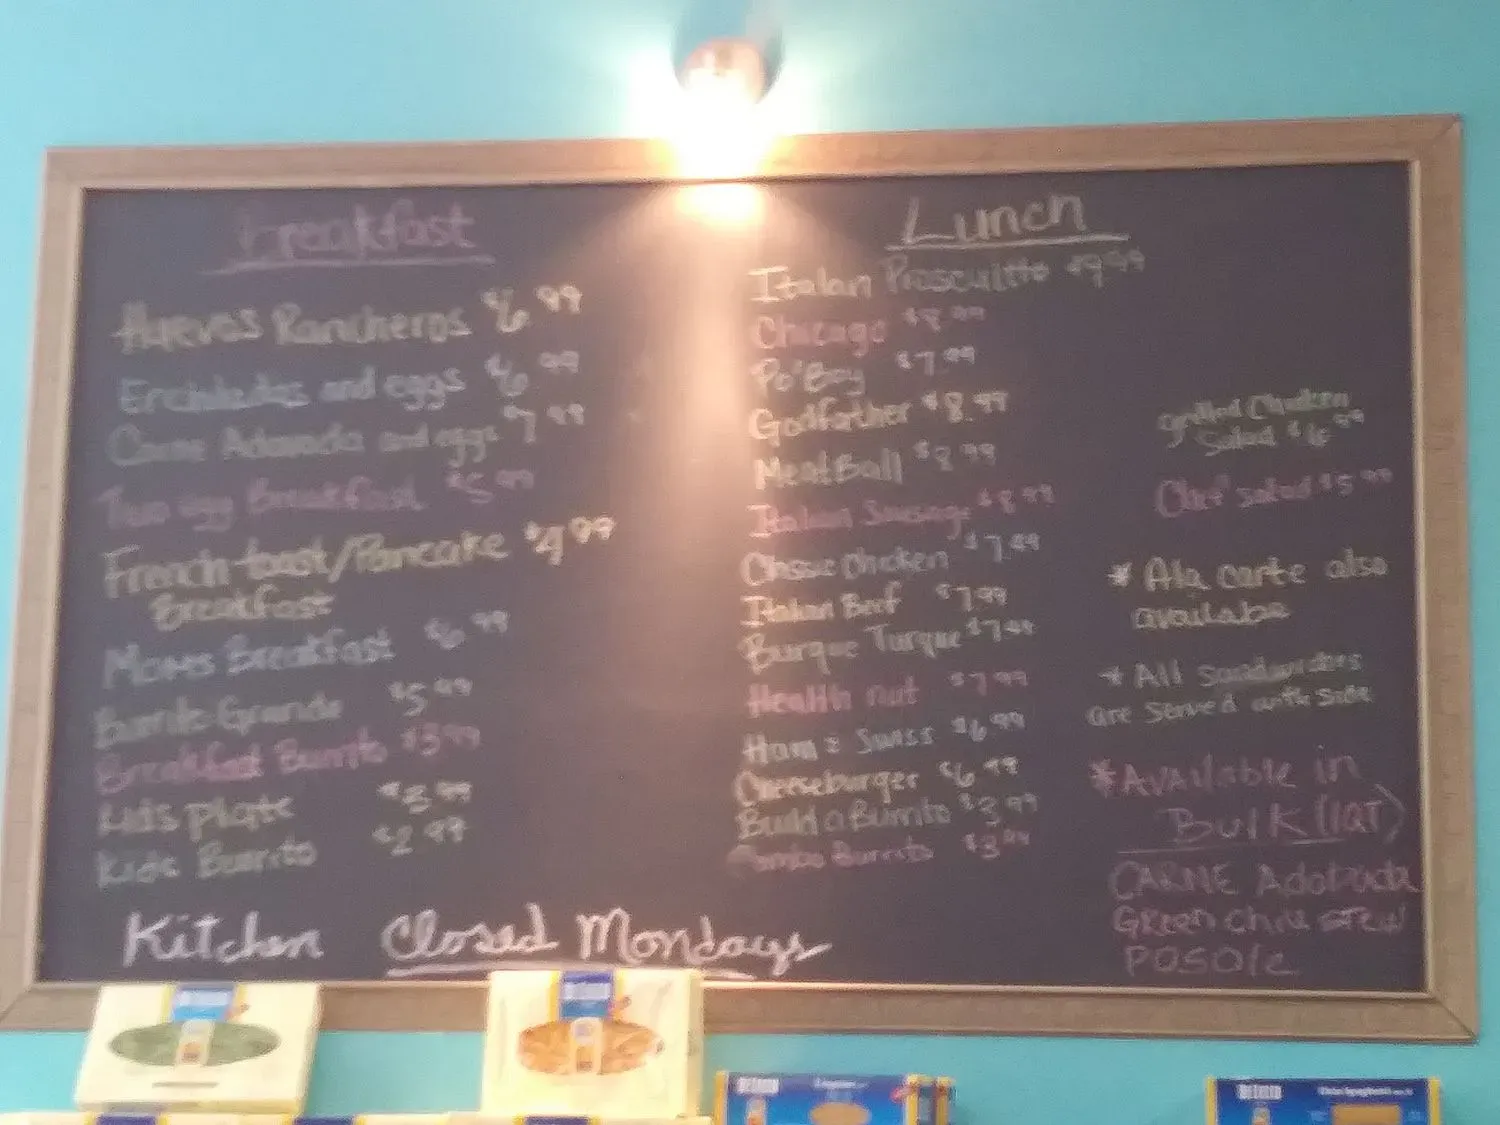 breakfast
Huevos Rancheros $6.99
Enchiladas and eggs $6.99
Carne Adovada and eggs $7.99
Two egg Breakfast $5.99
French toast/Pancake $4.99
Breakfast
Moms Breakfast $6.99
Burrito Grande $5.99
Breakfast Burrito $3.99
Kids Plate $3.99
Kids Burrito $2.99
Kitchen Closed Mondays
Lunch
Italian Proscuitto $9.99
Chicago $8.99
Po'Boy $7.99
Godfather $8.99
MeatBall $8.99
Italian Sausage $8.99
Classic Chicken $7.99
Italian Beef $7.99
Burque Turque $7.99
Health nut $7.99
Ham & Swiss $6.99
Cheeseburger $6.99
Build a Burrito $3.99
Combo Burrito $3.99
grilled Chicken
Salad $6.99
Chef salad $5.99
* Ala carte also
available
* All sandwiches
are served with side
*Available in
Bulk (1QT)
CARNE Adobada
Green Chile Stew
POSOle